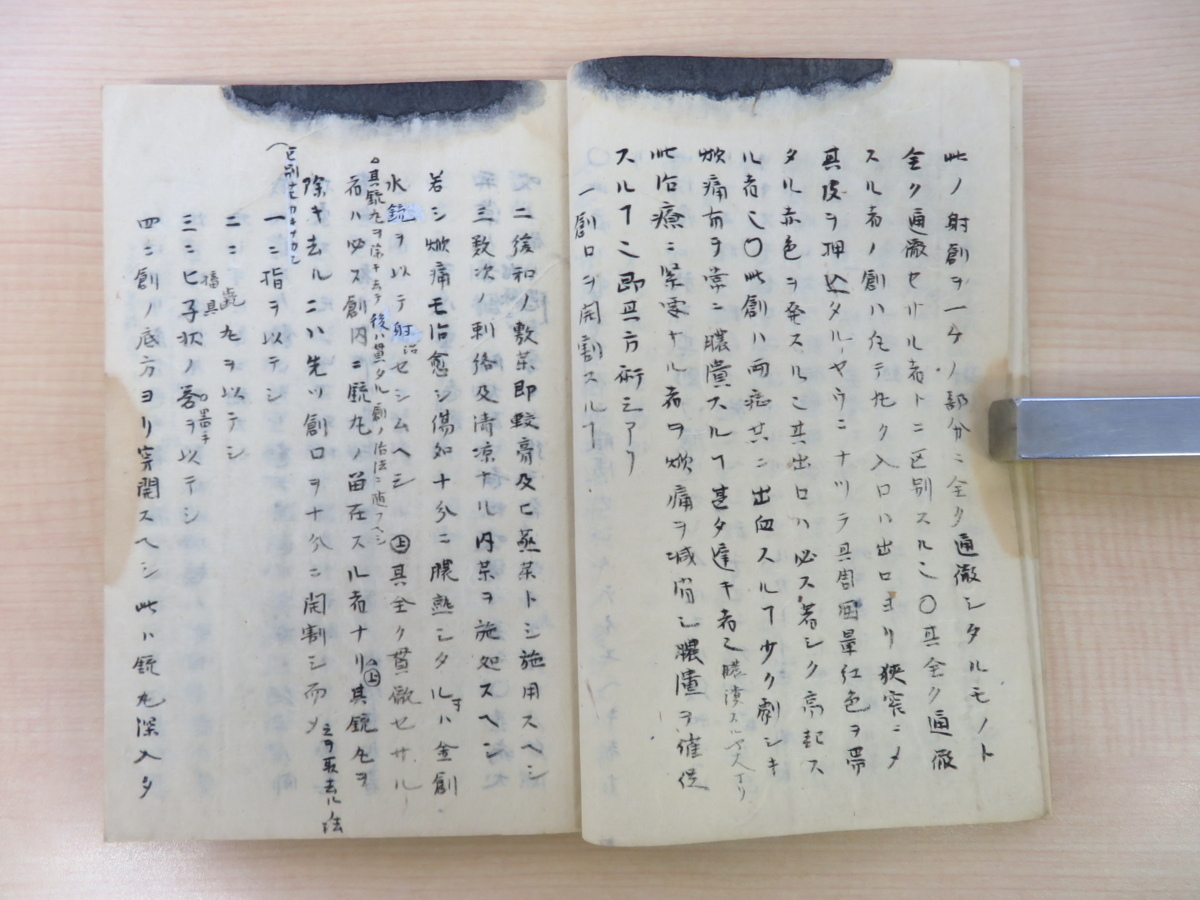 此ノ射創ヲ一ケノ部分ニ全ク通徹シタルモノト
全ク通徹セサル者トニ区別スル〇其全ク通徹
スル者ノ創ハ在テ丸ク入口ハ出口ヨリ狭窄ニメ
其皮ヲ押込タルヤウニナツテ其周囲暈紅色ヲ帯
タル赤色ヲ発スル其出口ハ必ス著シク高起ス
ル者〇此創ハ両症共ニ出血スルヿ少ク劇シキ
焮痛有ヲ常ニ膿潰スルヿ甚タ速キ者 膿潰スル
此治療ニ緊要ナル者ヲ焮痛ヲ減消シ膿潰ヲ催促
スルヿ即其方術三アリ
一創口ヲ開割スルヿ
二緩和ノ敷薬即軟膏及ヒ蒸薬トシ施用スヘシ
三数次ノ刺絡及清凉ナル内薬ヲ施処スヘシ
若シ焮痛モ治愈シ傷処十分ニ膿熟シタルヲハ金創
水銃ヲ以テ射セシムヘシ 其全ク貫徹セサル
其銃丸ヲ除キ去タ後ハ異タル創ノ治法ニ随フヘシ
者ハ必ス創内ニ銃丸ノ留在スル者ナリ 其銃丸ヲ
除キ去ルニハ先ツ創口ヲ十分ニ開割シ而メ
之ヲ取去ル法
一ニ指ヲ以テシ
二ニ 丸ヲ以テシ
三ニヒ子状ノ ヲ以テシ
四ニ創ノ底方ヨリ穿開スヘシ此ハ銃丸深入タ